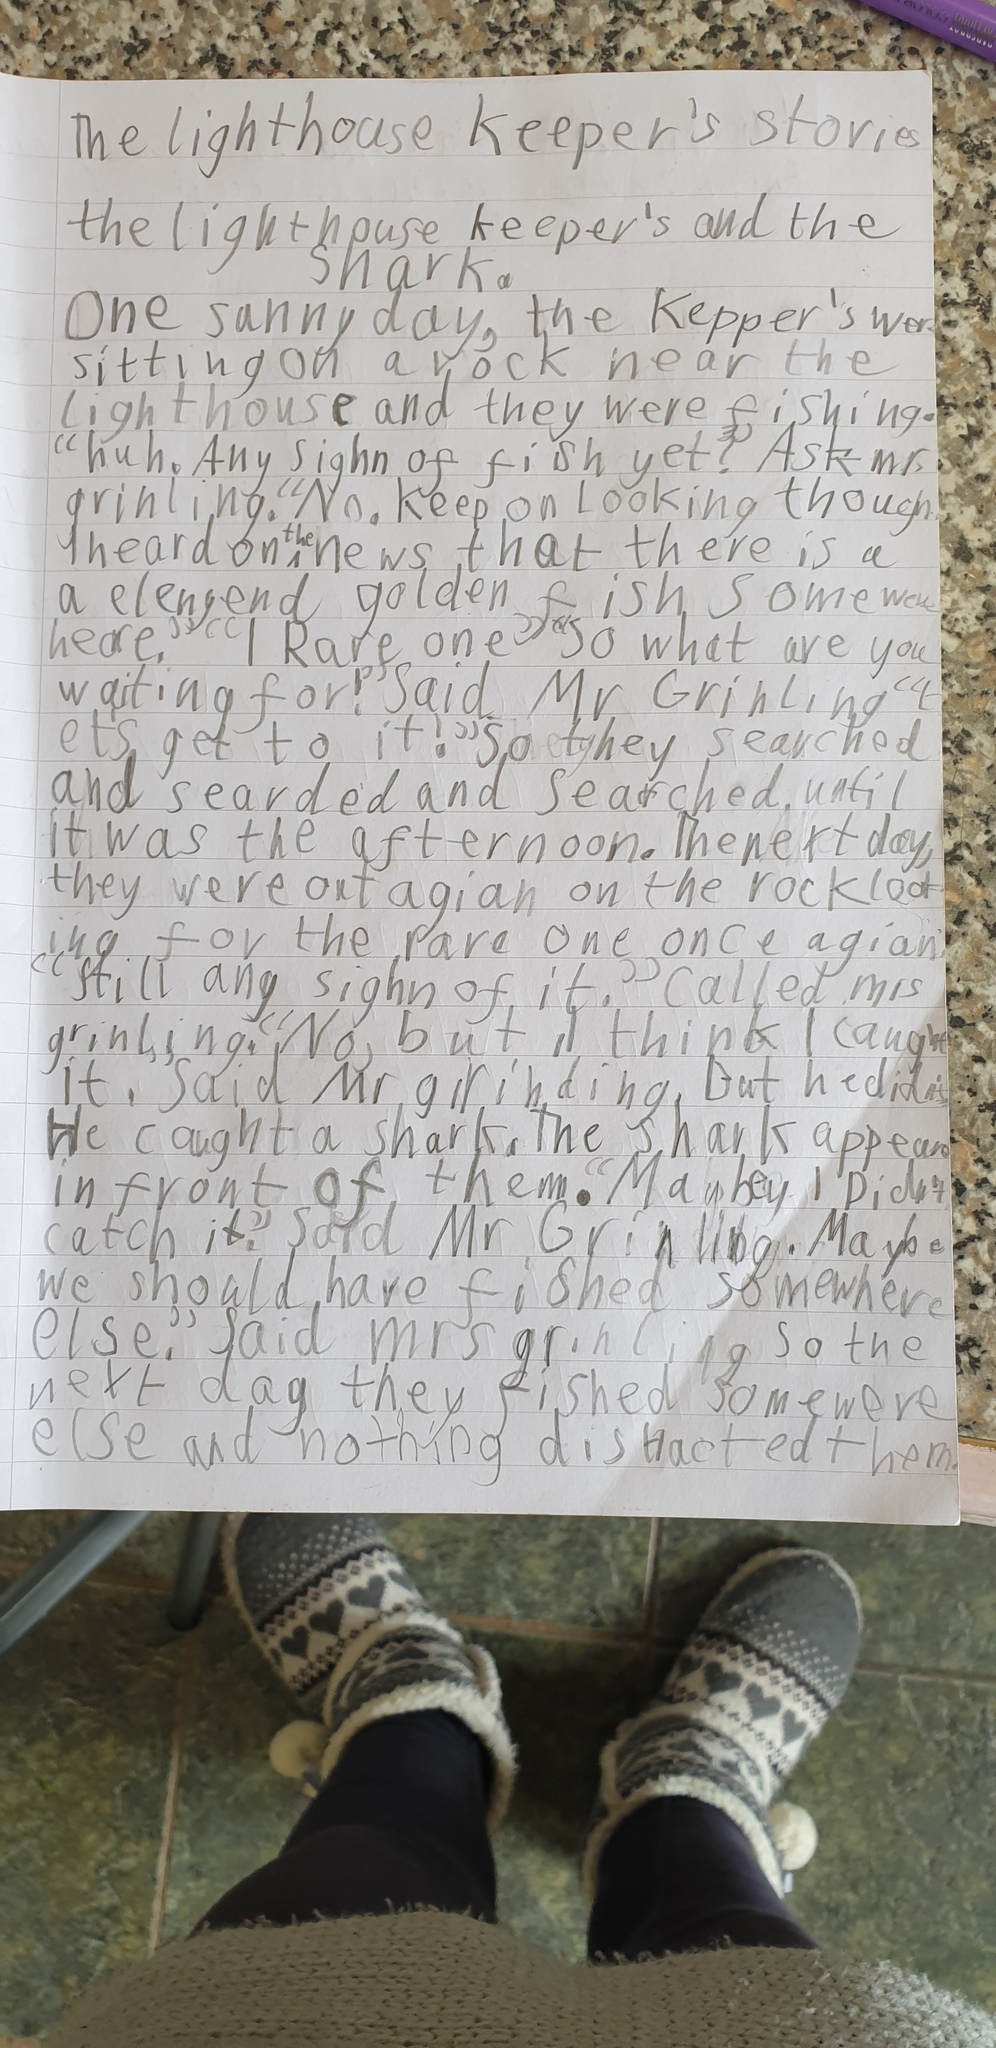 The lighthouse keeper's stories
the lighthouse keeper's and the
shark.
One sunny day, the Kepper's wer
sitting on a rock near the
lighthouse and they were fishing.
"huh. Any sighn of fish yet?" Ask mr
grinling. "No. keep on looking though.
I heard on the news that there is a
a elengend golden fish somewere
heare." "I Rare one" "So what are you
waiting for!" Said Mr Grinling "l
ets get to it!" So they searched
and searded and searched, until
it was the afternoon. The next day,
they were out agian on the rock look
ing for the rare one once agian
"still any sighn of it." Called mrs
grinling. "No, but I think I caught
it. Said Mr grinding. But he didn't
He caught a shark. The shark appears
in front of them. "Maybey I Didn't
catch it." Said Mr Grinling. Maybe
we should have fished somewhere
else." Said mrs grinling so the
next day they fished somewere
else and nothing distracted them.